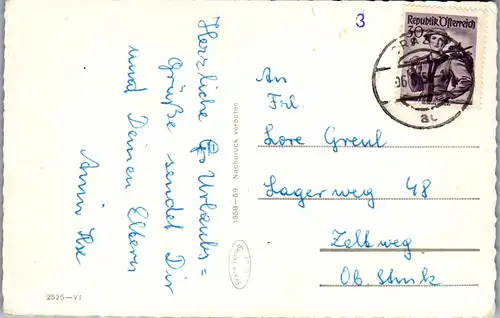 Herzliche Urlaubs=
grüße sendet Dir
und Deinen Eltern
3
REPUBLIK ÖSTERREICH
30
GRAZ
An
Frl.
Lore Greul
Lagerweg 48
Zeltweg
Ob. Stmk
1958-59 Nachdruck verboten
2525-VI